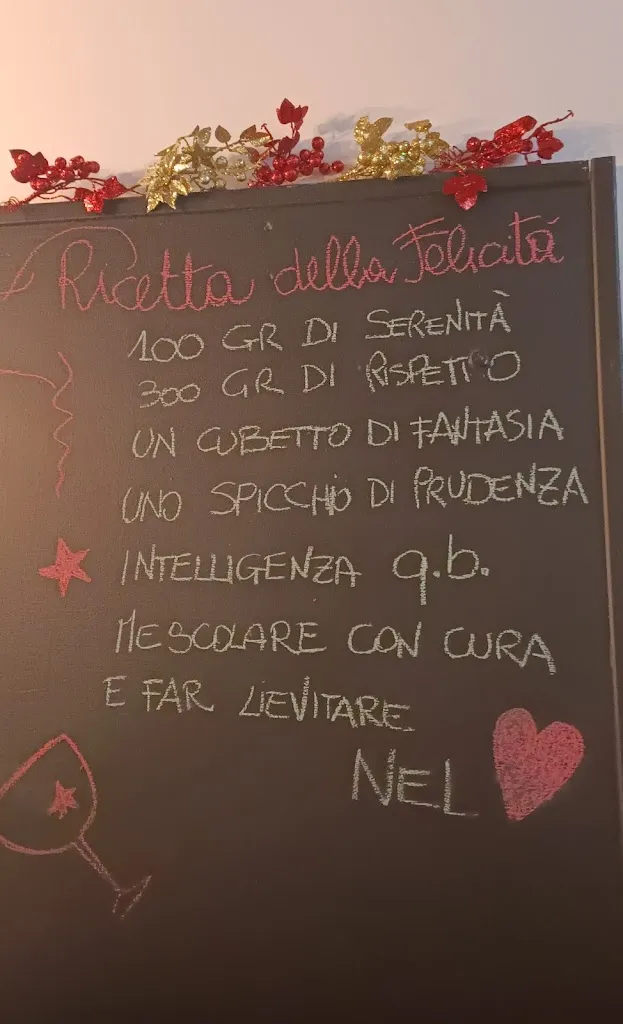 Ricetta della Felicitá
100 GR DI SERENITÀ
300 GR DI RISPETTO
UN CUBETTO DI FANTASIA
UNO SPICCHIO DI PRUDENZA
INTELLIGENZA q.b.
MESCOLARE CON CURA
E FAR LIEVITARE
NEL